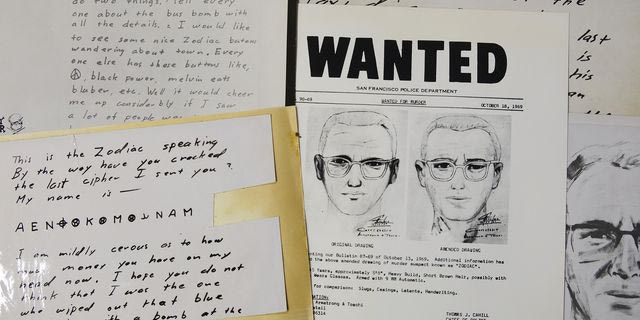 do two things. Tell every
one about the bus bomb with
all the details. I would like
to see some nice Zodiac butons
wandering about town. Every
one else has these buttons like,
☮, black power, melvin eats
bluber, etc. Well it would cheer
me up considerbly if I saw
a lot of people
This is the Zodiac speaking
By the way have you cracked
the last cipher I sent you?
My name is —
A E N ⌖ K M ⅃ N A M
I am mildly cerous as to how
money you have on my
head now. I hope you do not
think that I was the one
who wiped out that blue
with a bomb at the
WANTED
SAN FRANCISCO POLICE DEPARTMENT
90-69 WANTED FOR MURDER OCTOBER 18, 1969
ORIGINAL DRAWING AMENDED DRAWING
our Bulletin 87-69 of October 13, 1969. Additional information has
the above amended drawing of murder suspect known as "ZODIAC".
Years, approximately Heavy Build, Short Brown Hair, possibly with
Glasses. Armed with 9 MM Automatic.
for comparison: Slugs, Casings, Latents, Handwriting.
Armstrong & Toschi
THOMAS J. CAHILL
last
is
his
an